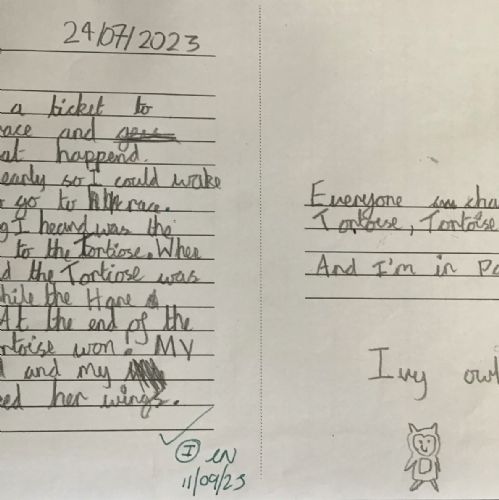 24/07/2023
a ticket to
ace and
at happend.
early so I could wake
go to race.
g I heard was the
to the Tortiose. When
d the Tortiose was
hile the Hare
At the end of the
rtoise won! My
and my
ed her wings.
I EN
11/09/23
Everyone in cha
Tortoise, Tortoise
And I'm in Pa
Ivy owl